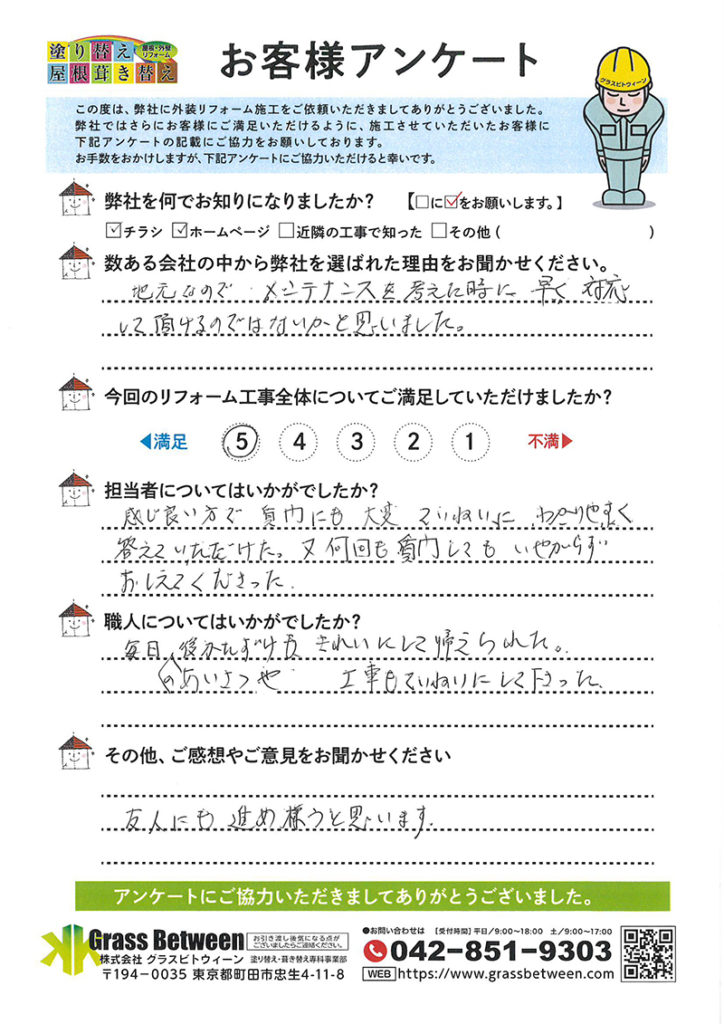 塗り替え
屋根・外壁
リフォーム
屋根葺き替え
お客様アンケート
グラスビトウィーン
この度は、弊社に外装リフォーム施工をご依頼いただきましてありがとうございました。
弊社ではさらにお客様にご満足いただけるように、施工させていただいたお客様に
下記アンケートの記載にご協力をお願いしております。
お手数をおかけしますが、下記アンケートにご協力いただけると幸いです。
弊社を何でお知りになりましたか? 【□に☑をお願いします。】
☑チラシ ☑ホームページ □近隣の工事で知った □その他 ( )
数ある会社の中から弊社を選ばれた理由をお聞かせください。
地元なので メンテナンスを考えた時に 早く 対応
して頂けるのではないかと思いました。
今回のリフォーム工事全体についてご満足していただけましたか?
◀満足 5 4 3 2 1 不満▶
担当者についてはいかがでしたか?
感じ良い方で 質問にも 大変 ていねいに わかりやすく
答えていただけた。又何回も質問しても いやがらず
おしえてくださった.
職人についてはいかがでしたか?
毎日、後かたずけも きれいにして帰えられた。
朝のあいさつや 工事もていねいにして下さった。
その他、ご感想やご意見をお聞かせください
友人にも 進め様うと思います.
アンケートにご協力いただきましてありがとうございました。
Grass Between
お引き渡し後気になる点が
ございましたらご連絡ください。
株式会社 グラスビトウィーン 塗り替え・葺き替え専科事業部
〒194-0035 東京都町田市忠生4-11-8
●お問い合わせは 【受付時間】平日/9:00~18:00 土/9:00~17:00
042-851-9303
WEB https://www.grassbetween.com